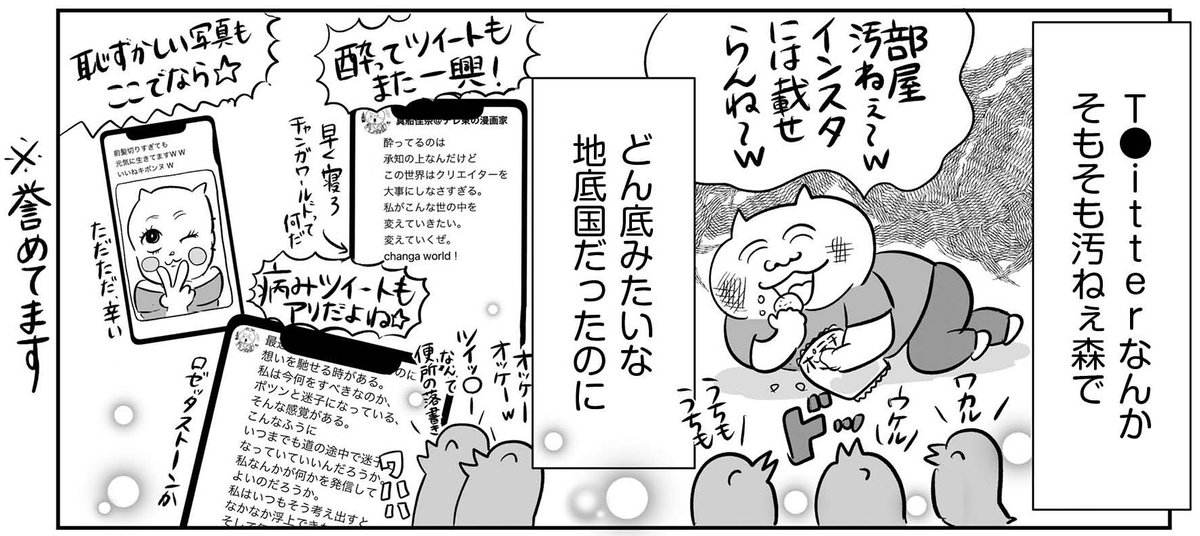 T●itterなんか
そもそも汚ねぇ森で
部屋
汚ねぇ〜w
インスタ
には載せ
らんね〜w
ワカル
ウケル
ドッ
うちも
うちも
どん底みたいな
地底国だったのに
酔ってツイートも
また一興!
真船佳奈@テレ東の漫画家
酔ってるのは
承知の上なんだけど
この世界はクリエイターを
大事にしなさすぎる。
私がこんな世の中を
変えていきたい。
変えていくぜ。
changa world!
早く寝ろ
チャンガワールドって
何だ
恥ずかしい写真も
ここでなら☆
前髪切りすぎても
元気に生きてますWW
いいねキボンヌW
ただただ、辛い
病みツイートも
アリだよね☆
想いを馳せる時がある。
私は今何をすべきなのか、
ポツンと迷子になっている、
そんな感覚がある。
こんなふうに
いつまでも道の途中で迷子
なっていていいんだろうか
私なんかが何かを発信して
よいのだろうか。
私はいつもそう考え出すと
なかなか浮上できた
ロゼッタストーンか
オッケー
オッケーw
ツイッ○ー
なんて
便所の落書き
ワハハ
※誉めてます